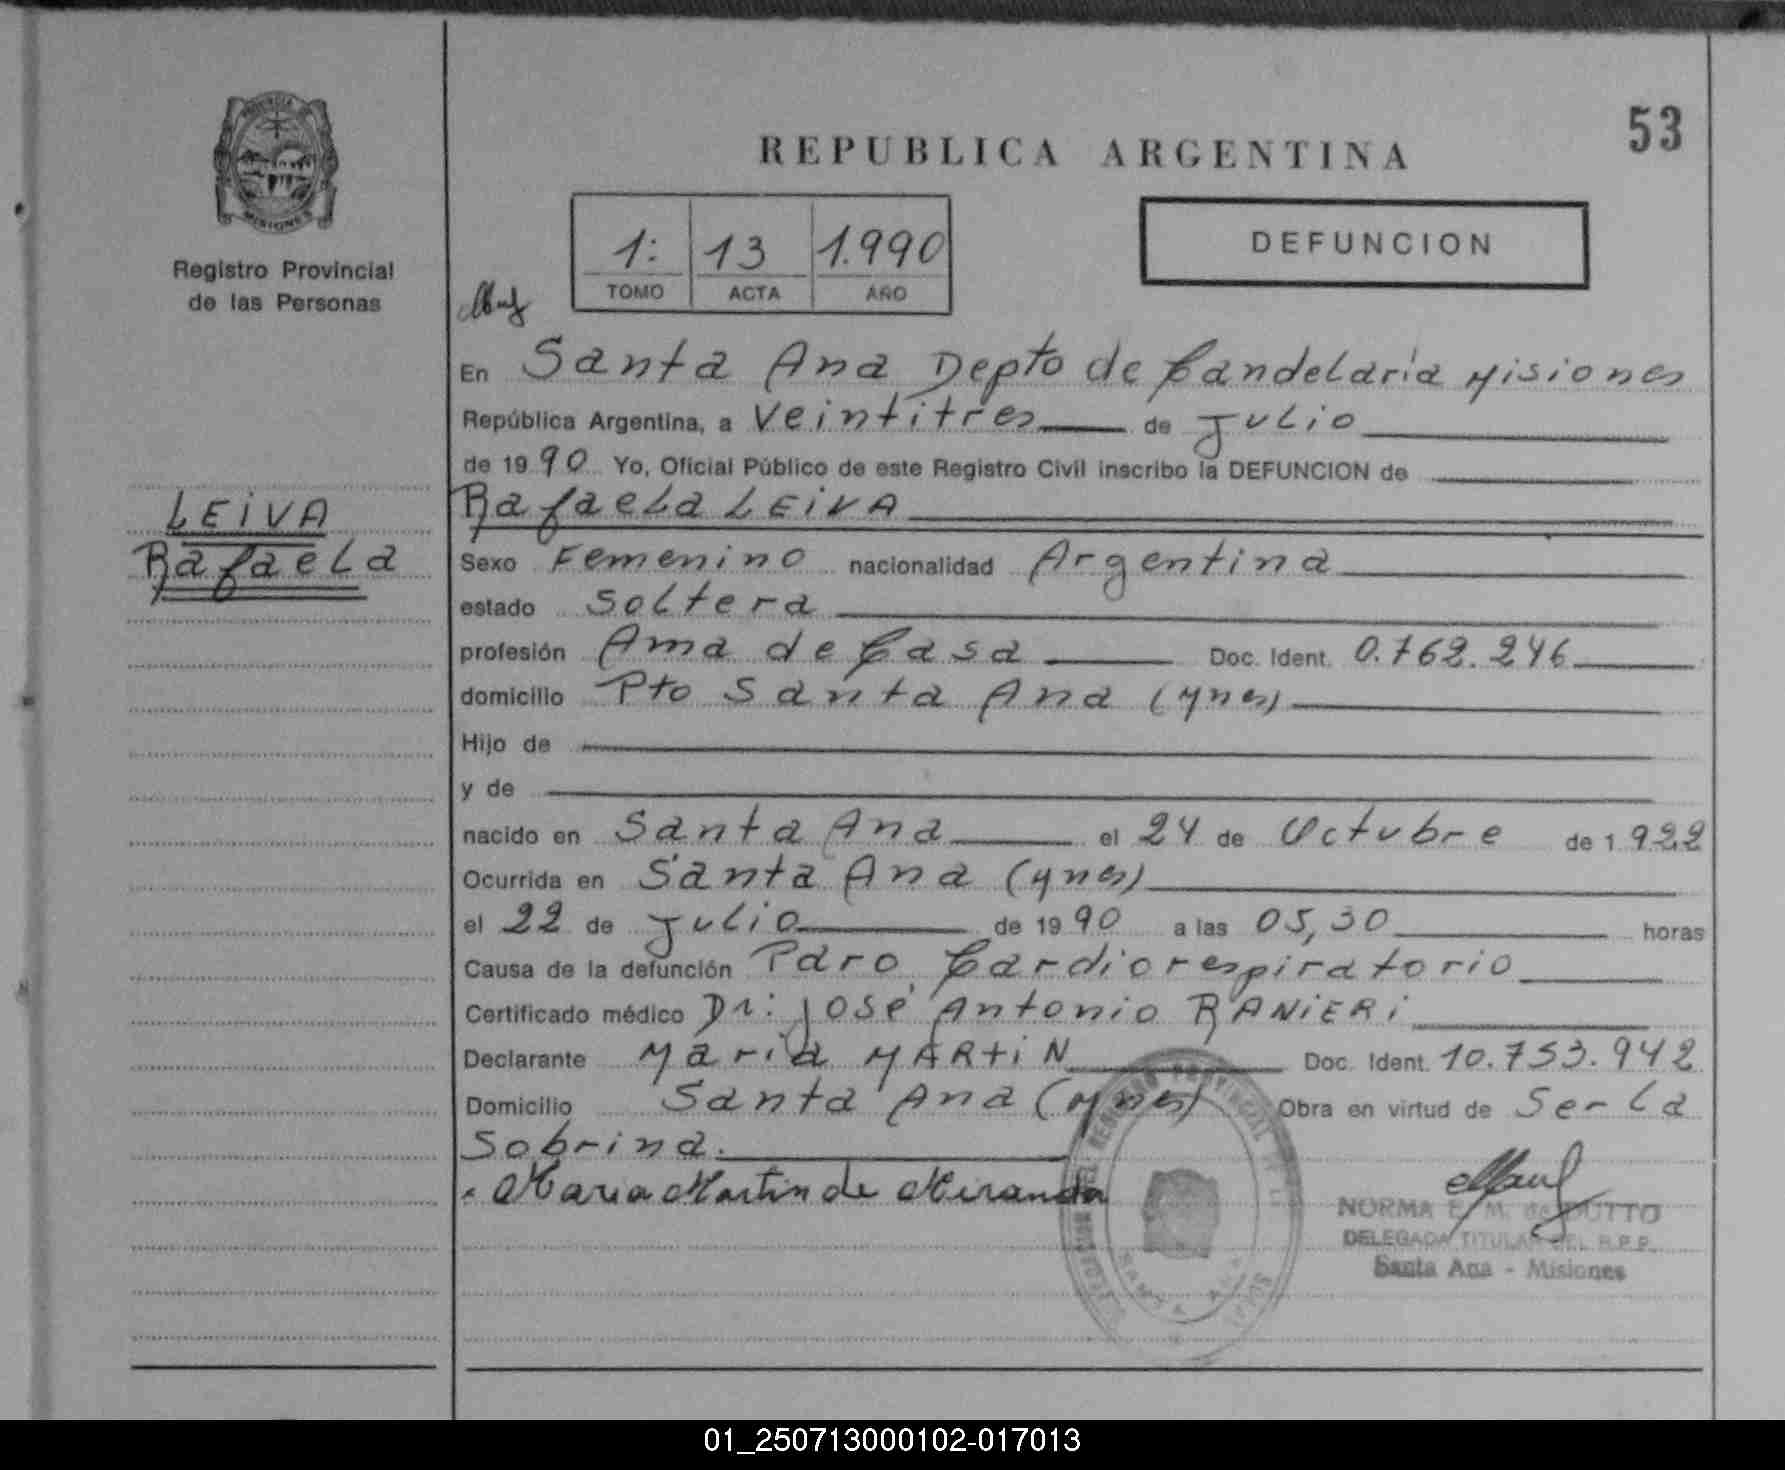 53
REPUBLICA ARGENTINA
PROVINCIA
MISIONES
Registro Provincial
de las Personas
1: 13 1.990
TOMO ACTA AÑO
DEFUNCION
En Santa Ana Depto de Candelaria Misiones
República Argentina, a Veintitres de Julio
de 1990 Yo, Oficial Público de este Registro Civil inscribo la DEFUNCION de
LEIVA
Rafaela
Rafaela LEIVA
Sexo Femenino nacionalidad Argentina
estado Soltera
profesión Ama de Casa Doc. Ident. 0.762.246
domicilio Pto Santa Ana (Mnes)
Hijo de
y de
nacido en Santa Ana el 24 de Octubre de 1.922
Ocurrida en Santa Ana (Mnes)
el 22 de Julio de 1990 a las 05,30 horas
Causa de la defunción Paro Cardiorespiratorio
Certificado médico Dr: José Antonio RANIERI
Declarante Maria MARTIN Doc. Ident. 10.753.942
Domicilio Santa Ana (Mnes) Obra en virtud de Ser la
Sobrina.
Maria Martin de Miranda
NORMA E. M. de DUTTO
DELEGADA TITULAR DEL R.P.P.
Santa Ana - Misiones
REGISTRO PROVINCIAL DE LAS
SANTA ANA
01_250713000102-017013